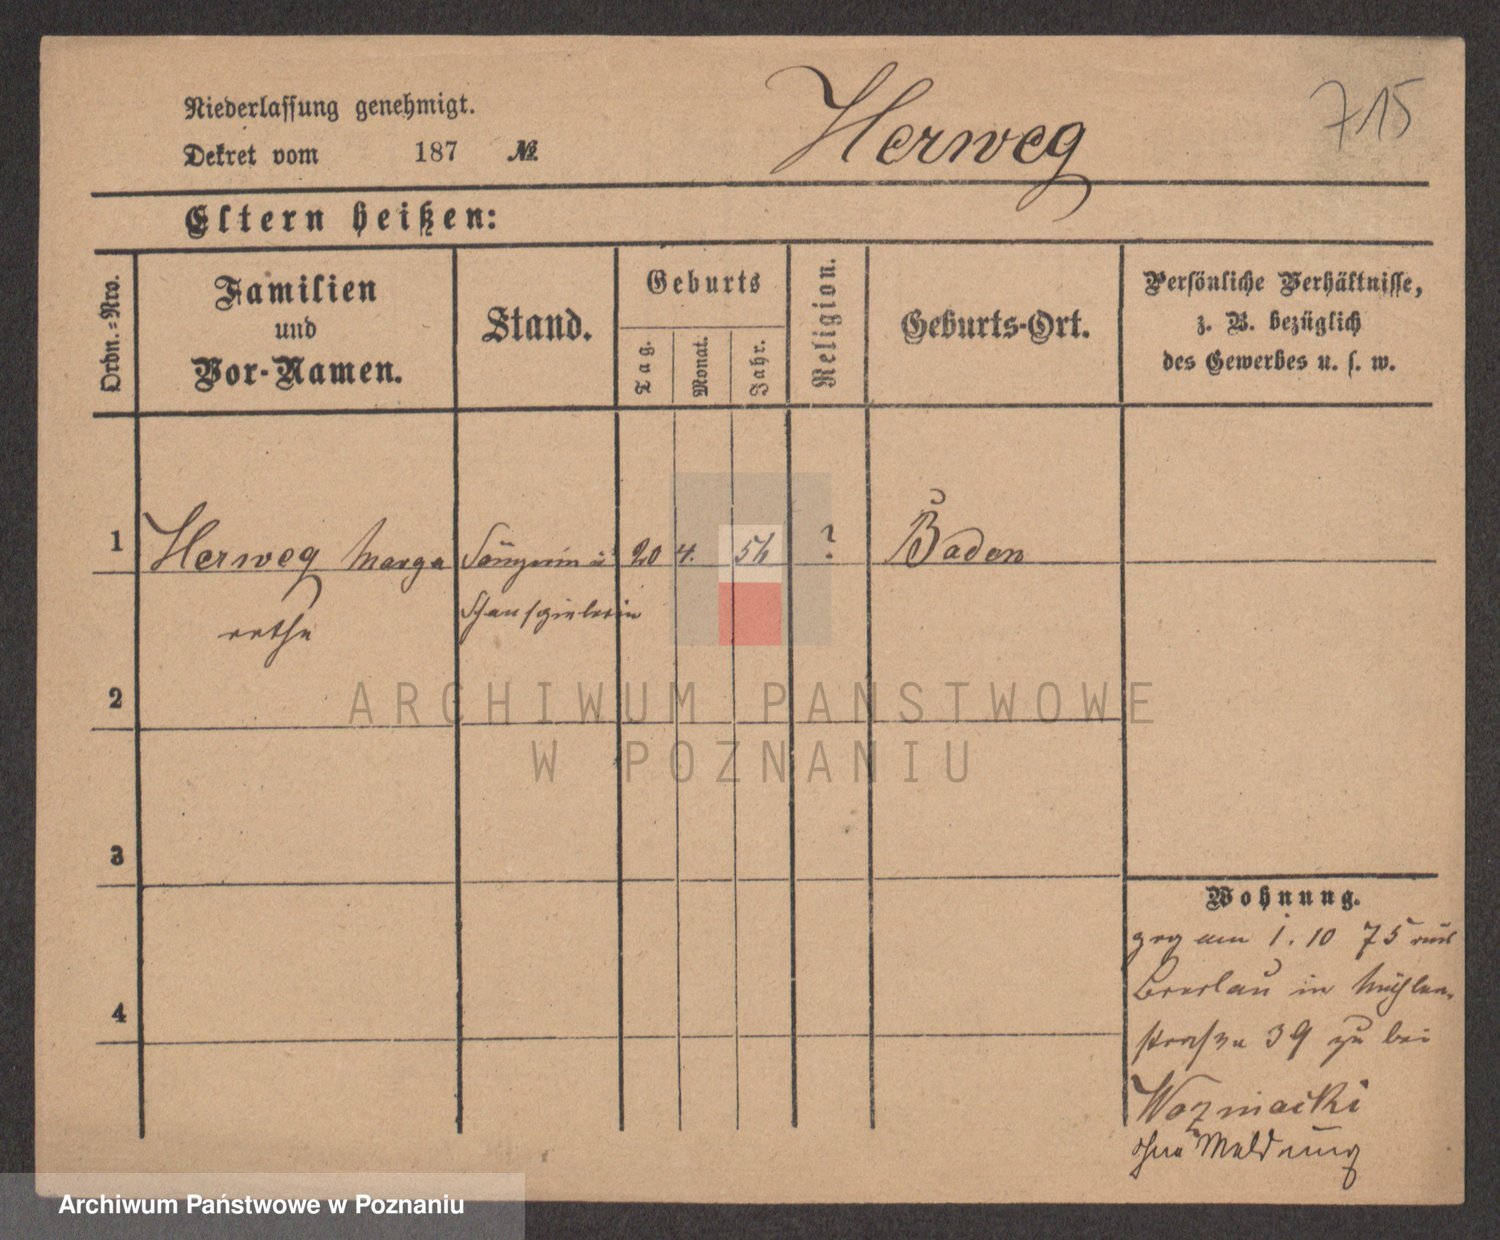 Niederlassung genehmigt.
Dekret vom 187 №
Herweg
715
Eltern heißen:
Ordn.=Nro.
Familien
und
Vor-Namen.
Stand.
Geburts
Tag.
Monat.
Jahr.
Religion.
Geburts-Ort.
Persönliche Verhältnisse,
z. B. bezüglich
des Gewerbes u. s. w.
1 Herweg Marga Sängerin u 20 4. 56 ? Baden
rethe Schauspielerin
2
3
4
Wohnung.
am 1. 10 75 aus
Breslau in Mühlen-
straße 39 zu bei
Wozniacki
ohne Meldung
ARCHIWUM PAŃSTWOWE
W POZNANIU
Archiwum Państwowe w Poznaniu